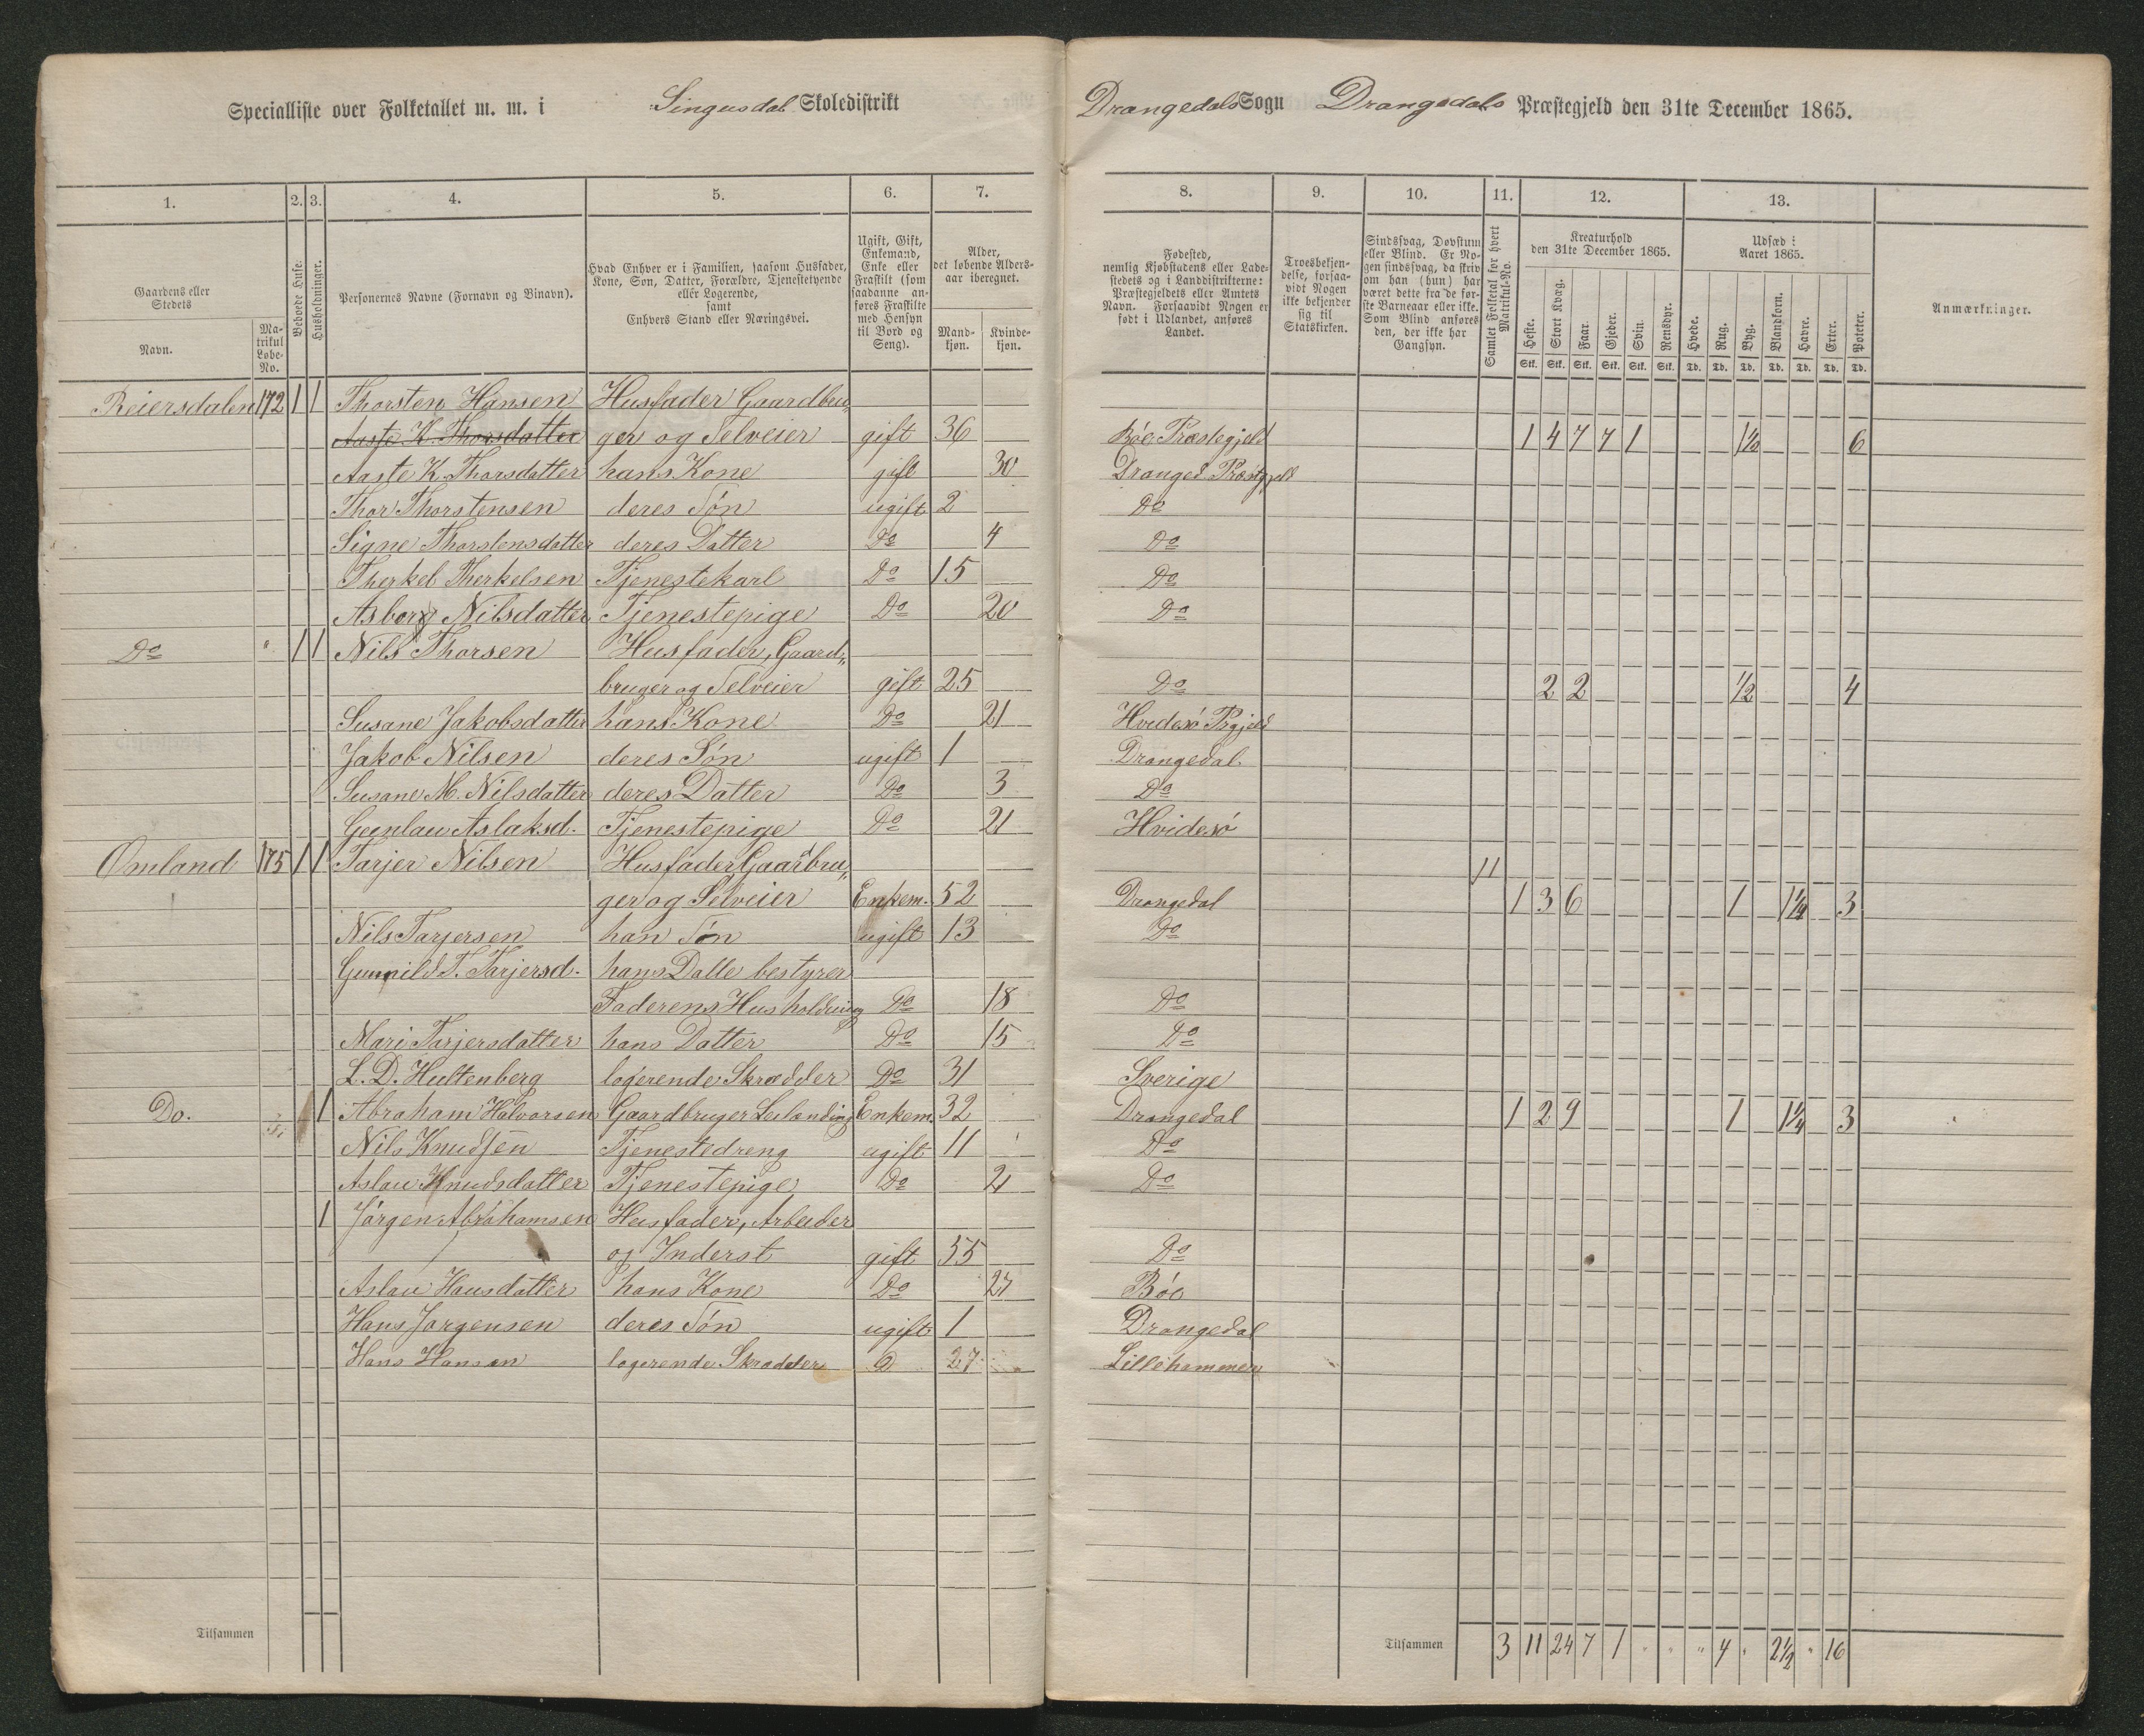 Specialliste over Folketallet m. m. i Singusdal Skoledistrikt Drangedals Sogn Drangedals Præstegjeld den 31te December 1865.
1. 2. 3. 4. 5. 6. 7. 8. 9. 10. 11. 12. 13.
Gaardens eller Stedets
Navn.
Matrikul Løbe-No.
Beboede Huse.
Husholdninger.
Personernes Navne (Fornavn og Binavn).
Hvad Enhver er i Familien, saasom Husfader, Kone, Søn, Datter, Forældre, Tjenestetyende eller Logerende, samt Enhvers Stand eller Næringsvei.
Ugift, Gift, Enkemand, Enke eller Fraskilt (som saadanne anføres Fraskilte med Hensyn til Bord og Seng).
Alder, det løbende Aldersaar iberegnet.
Mandkjøn. Kvindekjøn.
Fødested, nemlig Kjøbstadens eller Ladestedets og i Landdistrikterne: Præstegjeldets eller Amtets Navn. Forsaavidt Nogen er født i Udlandet, anføres Landet.
Troesbekjendelse, forsaavidt Nogen ikke bekjender sig til Statskirken.
Sindssvag, Døvstum eller Blind. Er Nogen sindssvag, da skriv om han (hun) har været dette fra de første Barneaar eller ikke. Som Blind anføres den, der ikke har Gangsyn.
Samlet Folketal for hvert Matrikul-No.
Kreaturhold den 31te December 1865.
Heste. Stort Kvæg. Faar. Gjeder. Svin. Rensdyr.
Stk. Stk. Stk. Stk. Stk. Stk.
Udsæd i Aaret 1865.
Hvede. Rug. Byg. Blandkorn. Havre. Erter. Poteter.
Td. Td. Td. Td. Td. Td. Td.
Anmærkninger.
Reiersdalen 172 1 1 Thorsten Hansen Husfader Gaardbru„
Aaste K. Thorsdatter ger og Selveier gift 36 Bøe Præstegjeld 1 4 7 7 1 1½ 6
Aaste K. Thorsdatter hans Kone gift 30 Dranged Præstgjeld
Thor Thorstensen deres Søn ugift 2 Do
Signe Thorstensdatter deres Datter Do 4 Do
Therkel Therkelsen Tjenestekarl Do 15 Do
Asborg Nilsdatter Tjenestepige Do 20 Do
Do " 1 1 Nils Thorsen Husfader, Gaard„
bruger og Selveier gift 25 Do 2 2 ½ 4
Susane Jakobsdatter hans Kone Do 21 Hvidesø Prgjeld
Jakob Nilsen deres Søn ugift 1 Drangedal
Susane M. Nilsdatter deres Datter Do 3 Do
Gunlau Aslaksd. Tjenestepige Do 21 Hvidesø
Omland 175 1 1 Tarjer Nilsen Husfader Gaardbru„ 11
ger og Selveier Enkem. 52 Drangedal 1 3 6 1 1¼ 3
Nils Tarjersen han Søn ugift 13 Do
Gunnild T. Tarjersd. hans Datte bestyrer
Faderens Husholdning Do 18 Do
Mari Tarjersdatter hans Datter Do 15 Do
L. D. Hultenberg logerende Skrædder Do 31 Sverige
Do. 1 Abraham Halvorsen Gaardbruger Leilænding Enkem. 32 Drangedal 1 2 9 1 1¼ 3
Nils Knudsen Tjenestedreng ugift 11 Do
Aslau Knudsdatter Tjenestepige Do 21 Do
1 Jørgen Abrahamsen Husfader, Arbeider
og Inderst gift 55 Do
Aslau Hansdatter hans Kone Do 27 Bøe
Hans Jørgensen deres Søn ugift 1 Drangedal
Hans Hansen logerende Skrædder D 27 Lillehammer
Tilsammen
Tilsammen 3 11 24 7 1 " " " 4 " 2½ " 16